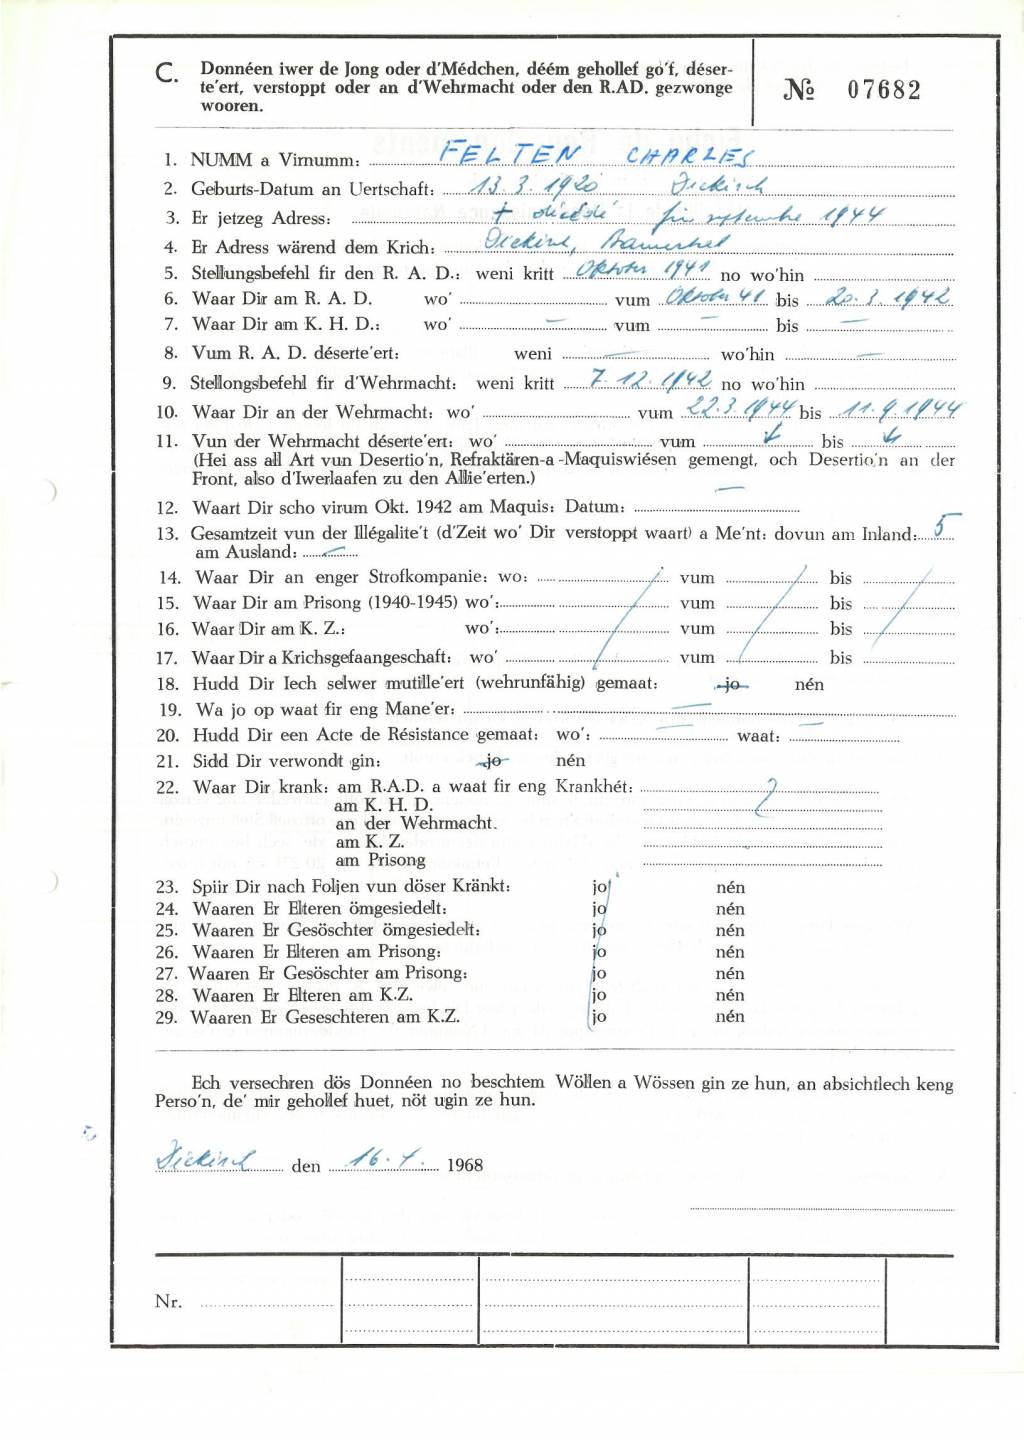 C. Donnéen iwer de Jong oder d'Médchen, déém gehollef go'f, déser-
te'ert, verstoppt oder an d'Wehrmacht oder den R.AD. gezwonge
wooren.
№ 07682
1. NUMM a Virnumm: FELTEN CHARLES
2. Geburts-Datum an Uertschaft: 13.3.1920 Diekirch
3. Er jetzeg Adress: + décédé fin septembre 1944
4. Er Adress wärend dem Krich: Diekirch, Bamerthal
5. Stellungsbefehl fir den R. A. D.: weni kritt Oktober 1941 no wo'hin
6. Waar Dir am R. A. D. wo' vum Oktober 41 bis 20.3.1942
7. Waar Dir am K. H. D.: wo' — vum — bis —
8. Vum R. A. D. déserte'ert: weni — wo'hin —
9. Stellongsbefehl fir d'Wehrmacht: weni kritt 7.12.1942 no wo'hin
10. Waar Dir an der Wehrmacht: wo' vum 22.3.1944 bis 11.9.1944
11. Vun der Wehrmacht déserte'ert: wo' vum ↓ bis ↓
(Hei ass all Art vun Desertio'n, Refraktären-a-Maquiswiésen gemengt, och Desertio'n an der
Front, also d'Iwerlaafen zu den Allie'erten.)
12. Waart Dir scho virum Okt. 1942 am Maquis: Datum: —
13. Gesamtzeit vun der Illégalite't (d'Zeit wo' Dir verstoppt waart) a Me'nt: dovun am Inland: 5
am Ausland: —
14. Waar Dir an enger Strofkompanie: wo: vum bis
15. Waar Dir am Prisong (1940-1945) wo': vum bis
16. Waar Dir am K. Z.: wo': vum bis
17. Waar Dir a Krichsgefaangeschaft: wo' vum bis
18. Hudd Dir Iech selwer mutille'ert (wehrunfähig) gemaat: jo nén
19. Wa jo op waat fir eng Mane'er: —
20. Hudd Dir een Acte de Résistance gemaat: wo': — waat: —
21. Sidd Dir verwondt gin: jo nén
22. Waar Dir krank: am R.A.D. a waat fir eng Krankhét: ?
am K. H. D.
an der Wehrmacht.
am K. Z.
am Prisong
23. Spiir Dir nach Foljen vun döser Kränkt: jo nén
24. Waaren Er Elteren ömgesiedelt: jo nén
25. Waaren Er Gesöschter ömgesiedelt: jo nén
26. Waaren Er Elteren am Prisong: jo nén
27. Waaren Er Gesöschter am Prisong: jo nén
28. Waaren Er Elteren am K.Z. jo nén
29. Waaren Er Geseschteren am K.Z. jo nén
Ech versechren dös Donnéen no beschtem Wöllen a Wössen gin ze hun, an absichtlech keng
Perso'n, de' mir gehollef huet, nöt ugin ze hun.
Diekirch den 16.1. 1968
Nr.